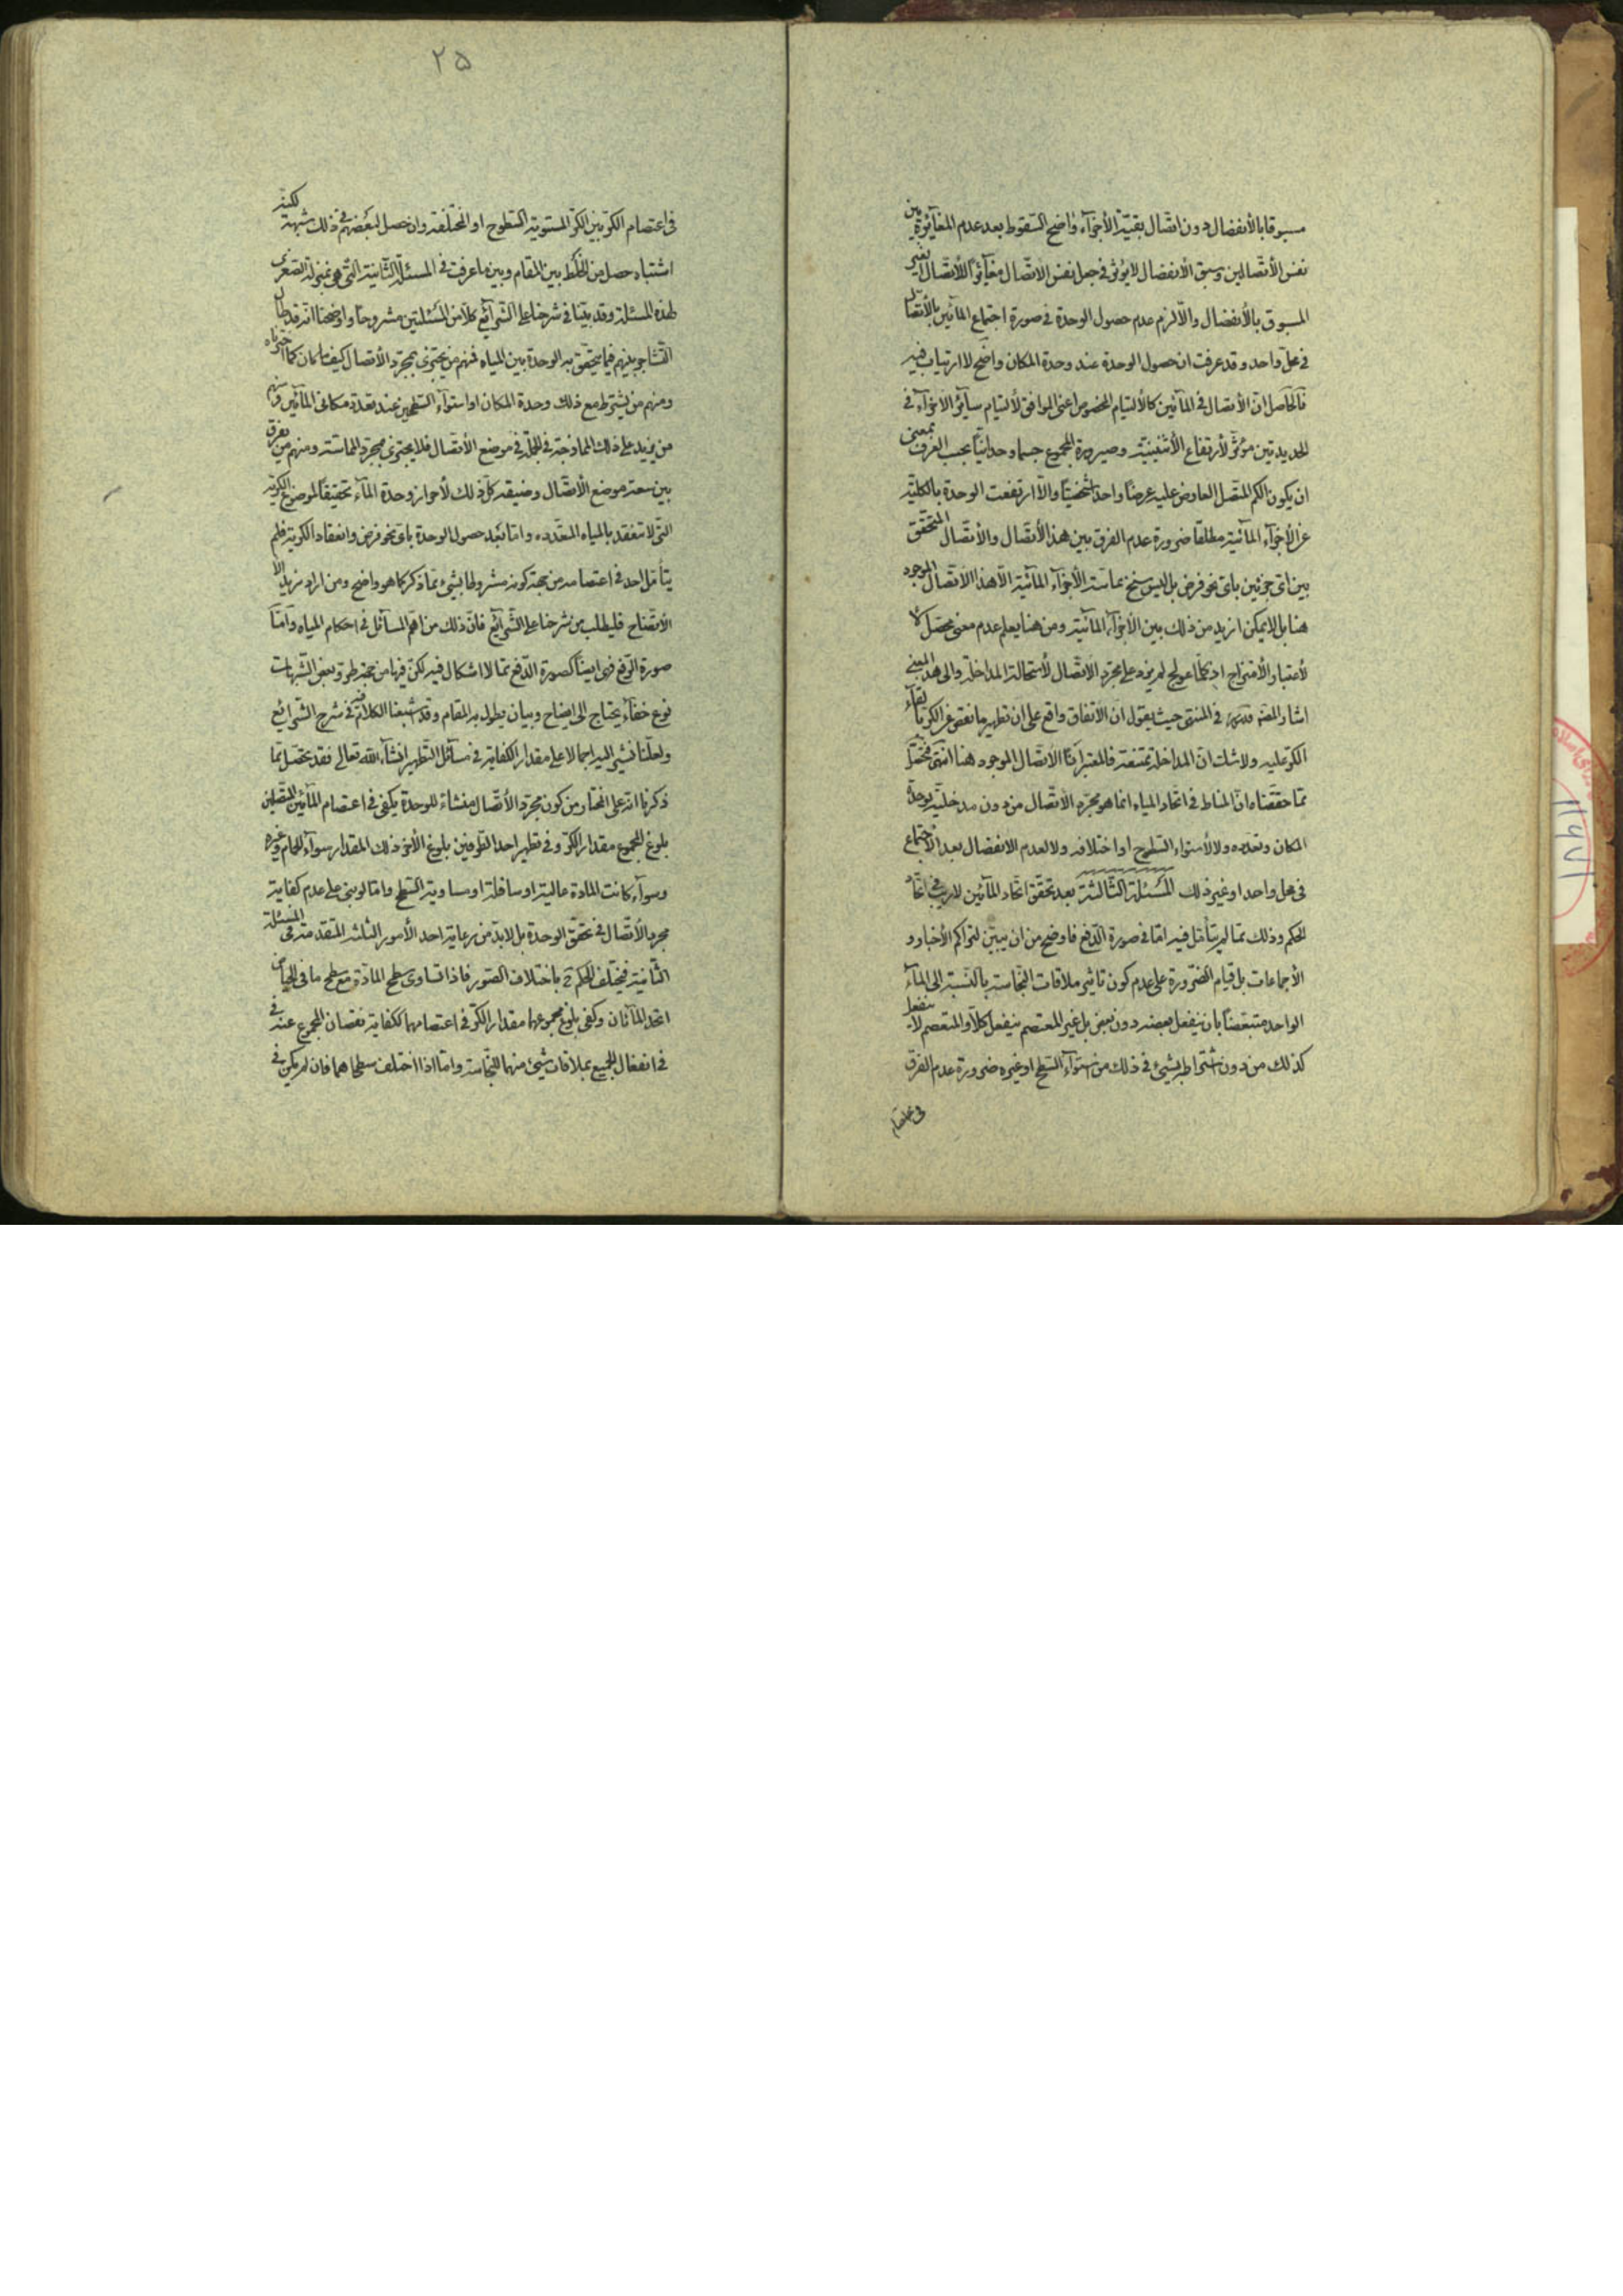 مسبوقا بالأنفصال دون اتصال بقية الأجزآء واضح السقوط بعد عدم المغآيرة بين
نفس الأتصالين وسبق الأنفصال لا يؤثر في جعل نفس الاتصال مغآيرًا للأتصال الغير
المسبوق بالأنفصال والّا لزم عدم حصول الوحدة في صورة اجتماع المآئين بالأتصال
في محل واحد وقد عرفت ان حصول الوحدة عند وحدة المكان واضح لا ارتياب فيه
فالحاصل انّ الأتصال في المآئين كالألتيام المخصوص اعنى الموافق لألتيام سآير الاجزآء في
الحديدتين مؤثّر لأرتفاع الأثنينيّة وصيرورة المجموع جسما وحدانيًّا بحسب العرف بمعنى
ان يكون الكم المتصل العارض عليه عرضًا واحدا شخصيّا والّا ارتفعت الوحدة بالكلية
عن الأجزآء المائية مطلقا ضرورة عدم الفرق بين هذا الأتصال والأتصال المتحقّق
بين اىّ جزئين باىّ نحو فرض بل ليس سنخ مماسة الأجزآء المآئية الّا هذا الاتصال الموجود
هنا بل لا يمكن ازيد من ذلك بين الأجزآء المآئية ومن هنا يعلم عدم معنى محصّل
لأعتبار الأمتزاج اذ كلّما عولج لم يزد على مجرّد الاتصال لأستحالة المداخلة والى هذا المعنى
اشار المصنّف قدّه في المنتهى حيث يقول ان الأتفاق واقع على ان تطهير ما نقص عن الكر بالقآء
الكر عليه ولا شك ان المداخلة ممتنعة فالمعتبر اذًا الاتصال الموجود هنا انتهى فتحصّل
ممّا حققناه انّ المناط في اتحاد المياه انما هو مجرّد الاتصال من دون مدخلية لوحدة
المكان وتعدّده ولا لأستواء السطوح او اختلافه ولا لعدم الانفصال بعد الاجتماع
في محل واحد او غير ذلك المسئلة الثالثة بعد تحقّق اتحاد المآئين لا ريب في اتحاد
الحكم وذلك ممّا لم يتأمّل فيه امّا في صورة الدّفع فاوضح من ان يبيّن لتراكم الأخبار و
الأجماعات بل قيام الضّرورة على عدم كون تاثير ملاقات النجاسة بالنسبة الى المآء
الواحد متبعّضًا بان ينفعل بعضه دون بعض بل غير المعتصم ينفعل كلًّا والمتعصم لا ينفعل
كذلك من دون اشتراط بشيئ في ذلك من استوآء السطح او غيره ضرورة عدم الفرق
في اعتصام
۲۵
في اعتصام الكر بين الكر المستوية السطوح او المختلفة وان حصل لبعضهم في ذلك شبهة لكنه
اشتباه حصل من الخلط بين المقام وبين ما عرفت في المسئلة الثانية التى هى بمنزلة الصغرى
لهذه المسئلة وقد بيّنا في شرحنا على الشرآئع كلًّا من المسئلتين مشروحا واوضحنا انه قد طال
التشاجر بينهم فيما يتحقّق به الوحدة بين المياه فمنهم من يجتزى بمجرّد الأتصال كيف ما كان كما اخترناه
ومنهم من يشترط مع ذلك وحدة المكان او استوآء السطحين عند تعدّد مكانى المآئين ومنهم
من يزيد على ذلك الممازجة في الجملة في موضع الأتصال فلا يجتزى بمجرّد المماسّة ومنهم من يفرق
بين سعة موضع الأتصال وضيقه كلّ ذلك لأحراز وحدة المآء تحقيقًا لموضوع الكرية
التى لا تنعقد بالمياه المتعدده وامّا بعد حصول الوحدة باىّ نحو فرض وانعقاد الكرية فلم
يتأمّل احد في اعتصامه من جهة كونه مشروطا بشيئ ممّا ذكر كما هو واضح ومن اراد مزيد الأ
الأتضاح فليطلب من شرحنا على الشرآئع فانّ ذلك من اهمّ المسآئل في احكام المياه وامّا
صورة الرّفع فهى ايضًا كصورة الدّفع ممّا لا اشكال فيه لكن فيها من جهة طروّ بعض الشبهات
نوع خفآء يحتاج الى ايضاح وبيان يطول به المقام وقد اشبعنا الكلام فيه في شرح الشرائع
ولعلّنا نشير اليه اجمالا على مقدار الكفاية في مسآئل التطهير انشآء الله تعالى فقد تحصّل ممّا
ذكرنا انه على المختار من كون مجرّد الأتصال منشاءً للوحدة يكفى في اعتصام المآئين المتصلين
بلوغ المجموع مقدار الكر وفى تطهير احد الطرفين بلوغ الأخر ذلك المقدار سوآء للحمام وغيره
وسوآء كانت المادة عالية او سافلة او مساوية السطح وامّا لو بنى على عدم كفاية
مجرد الأتصال في تحقّق الوحدة بل لا بدّ من رعاية احد الأمور الثلثة المتقدمة في المسئلة
الثّانية فيختلف الحكم ح باختلاف الصور فاذا تساوى سطح المادّة مع سطح ما في الحياض
اتحد المآئان وكفى بلوغ مجموعهما مقدار الكر في اعتصامهما ككفاية نقصان المجموع عنه في
في انفعال الجميع بملاقات شيئ منهما للنجاسة وامّا اذا اختلف سطحاهما فان لم يكن في